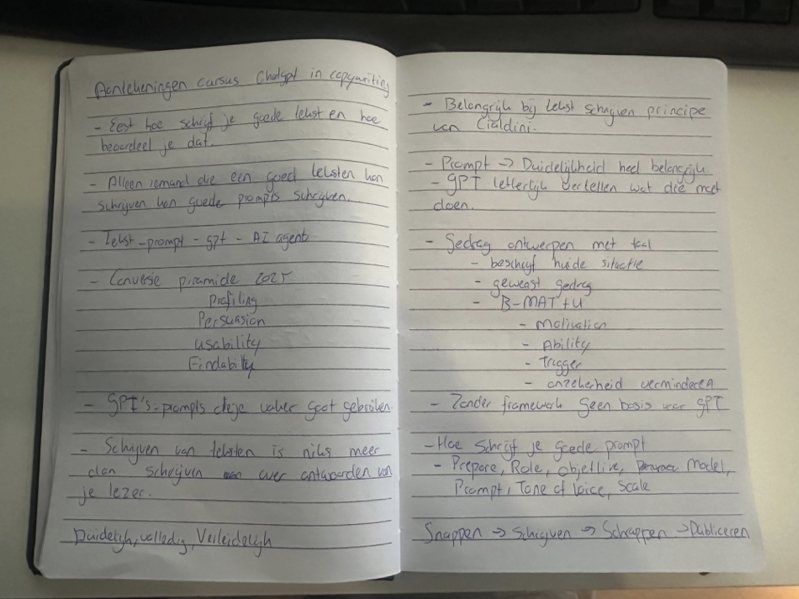 Aantekeningen cursus Chatgpt in copywriting
- Eerst hoe schrijf je goede tekst en hoe
beoordeel je dat.
- Alleen iemand die een goed teksten kan
schrijven kan goede prompts schrijven.
- Tekst - prompt - gpt - AI agent
- Conversie piramide 2025
Profiling
Persuasion
Usability
Findabilty
- GPT's - prompts die je vaker gaat gebruiken
- Schrijven van teksten is niks meer
dan schrijven over antwoorden van
je lezer.
Duidelijk, volledig, Verleidelijk
- Belangrijk bij tekst schrijven principe
van Cialdini.
- Prompt → Duidelijkheid heel belangrijk
- GPT letterlijk vertellen wat die moet
doen.
- Gedrag ontwerpen met taal
- beschrijf huide situatie
- gewenst gedrag
- B-MAT+U
- Motivation
- Ability
- Trigger
- onzekerheid verminderen
- Zonder framework geen basis voor GPT
- Hoe Schrijf je goede prompt
- Prepare, Role, objective, Model,
Prompt, Tone of Voice, Scale
Snappen → Schrijven → Schrappen → Publiceren